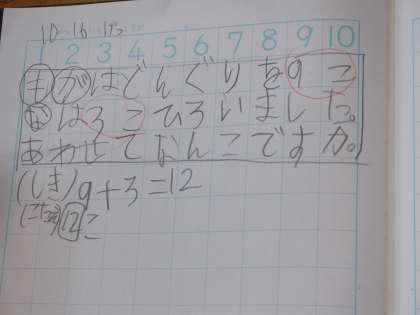 10-16 げつ
1 2 3 4 5 6 7 8 9 10
まがはどんぐりを9こ
なは3こひろいました。
あわせてなんこですか。
(しき)9+3=12
(こたえ)12こ